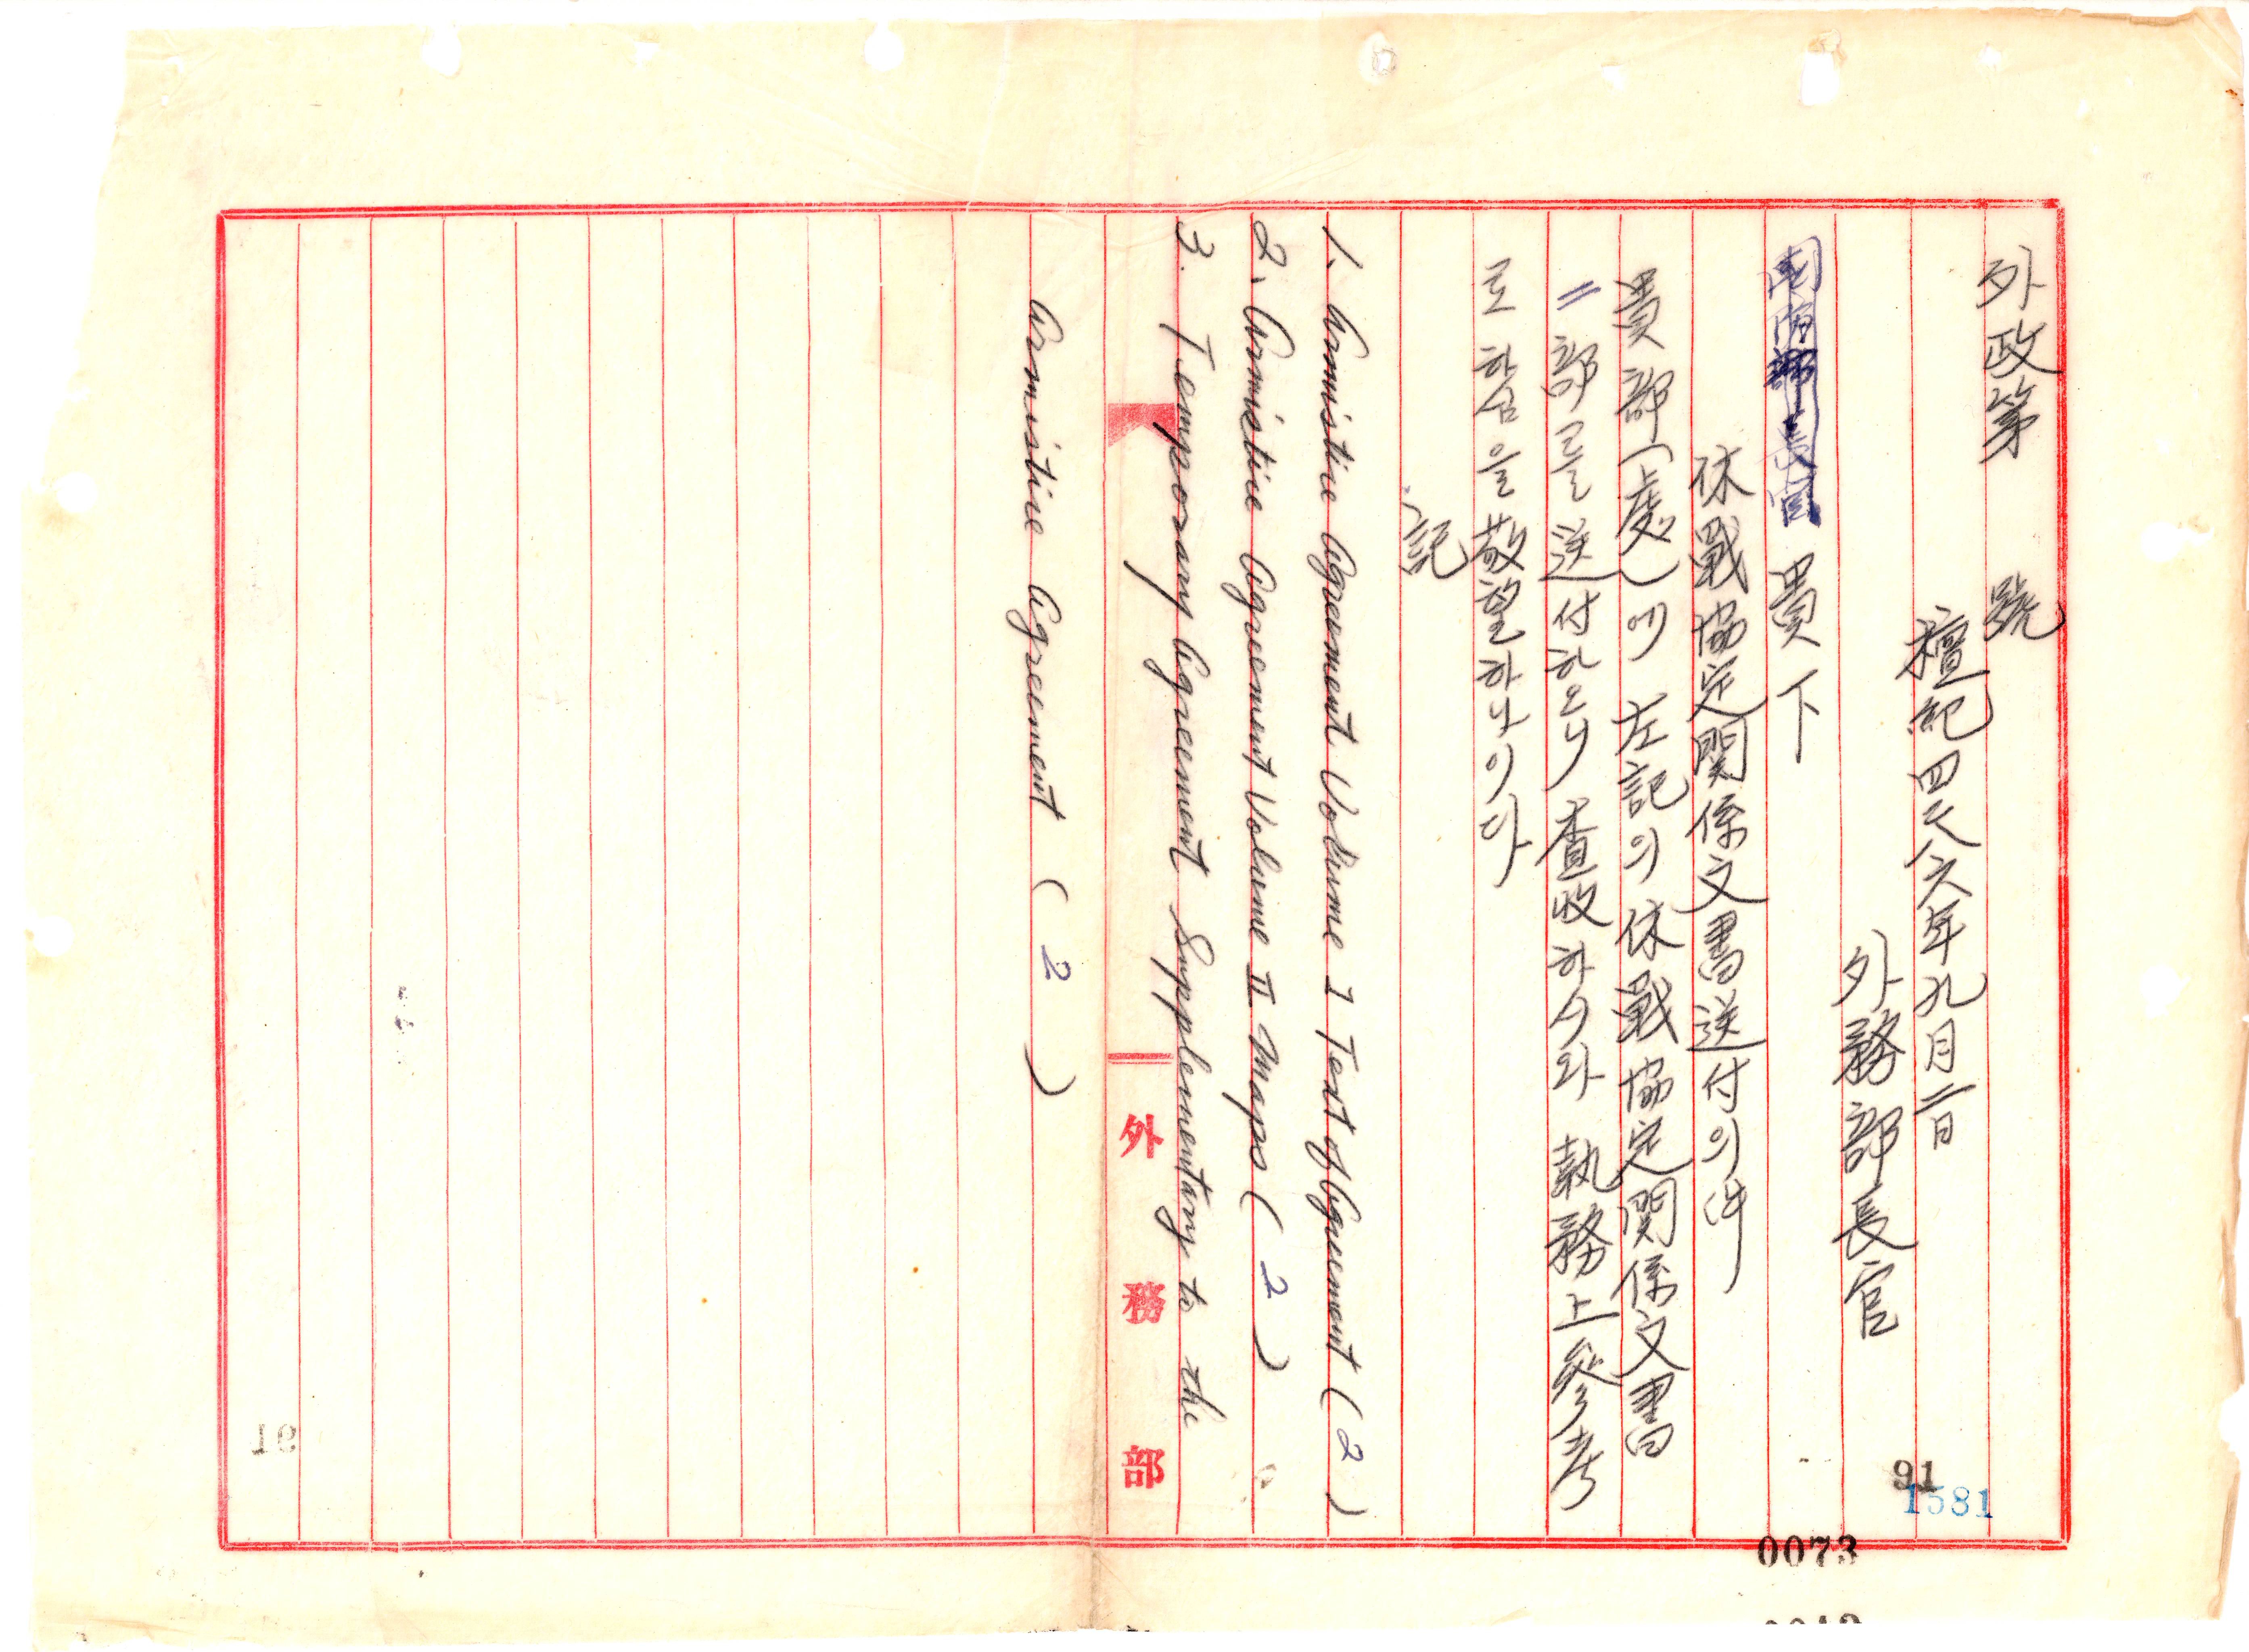 外政第 號
檀紀四二八六年九月二日
外務部長官
國防部長官 貴下
休戰協定関係文書送付의件
貴部(處)에 左記의 休戰協定関係文書
二部를 送付하오니 査收하시와 執務上參考
로 하심을 敬望하나이다
記
1. Armistice Agreement Volume I Text of Agreement (2)
2. Armistice Agreement Volume II Maps (2)
3. Temporary Agreement Supplementary to the
Armistice Agreement (2)
外務部
91
1581
0073